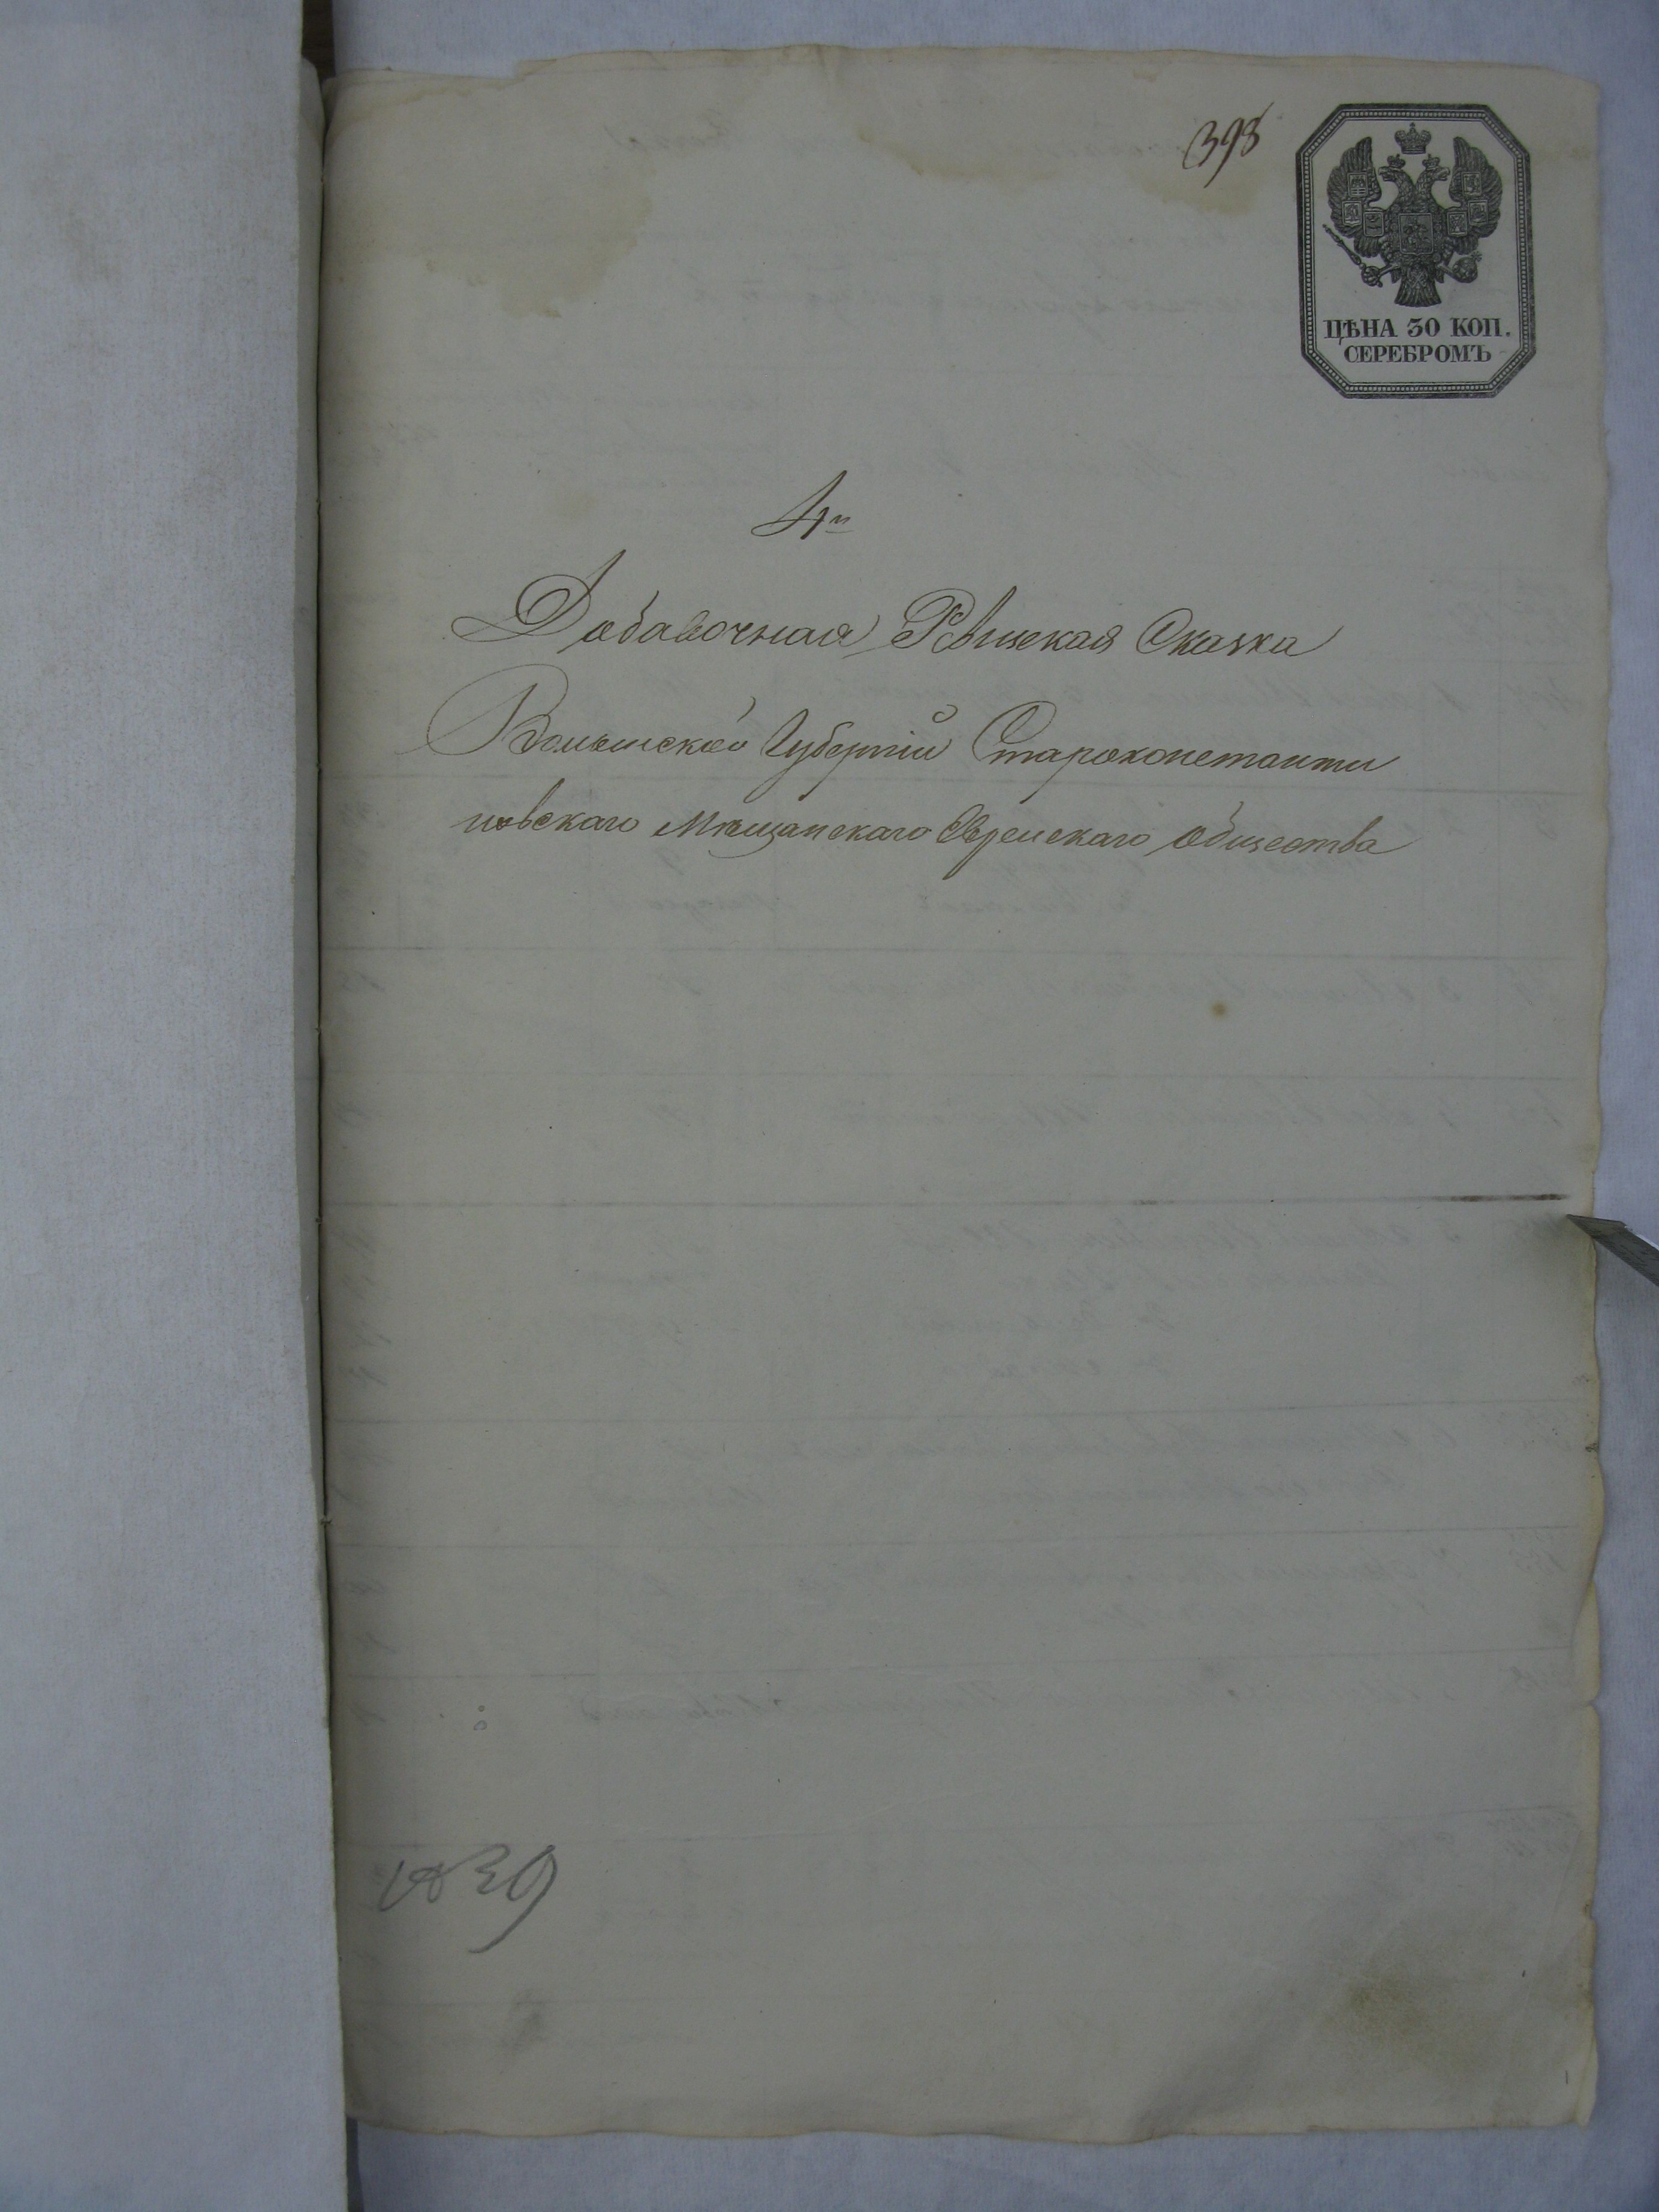 398
ЦѢНА 30 КОП.
СЕРЕБРОМЪ
4я
Добавочная Ревизская Сказка
Волынской Губерніи Староконстанти
новскаго Мѣщанскаго Еврейскаго Общества